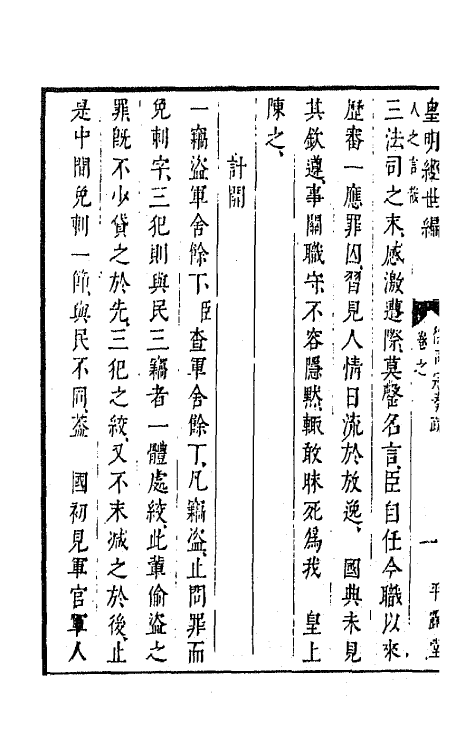 皇明經世編
卷之
一
平露堂
人之言哉
三法司之末感激遭際莫罄名言臣自任今職以來
歷審一應罪囚習見人情日流於放逸 國典未見
其欽遵事關職守不容隱默輒敢昧死爲我 皇上
陳之
計開
一竊盜軍舍餘丁臣查軍舍餘丁凡竊盜止問罪而
免刺字三犯則與民三竊者一體處絞此輩偷盜之
罪旣不少貸之於先三犯之絞又不末減之於後止
是中間免刺一節與民不同葢 國初見軍官軍人